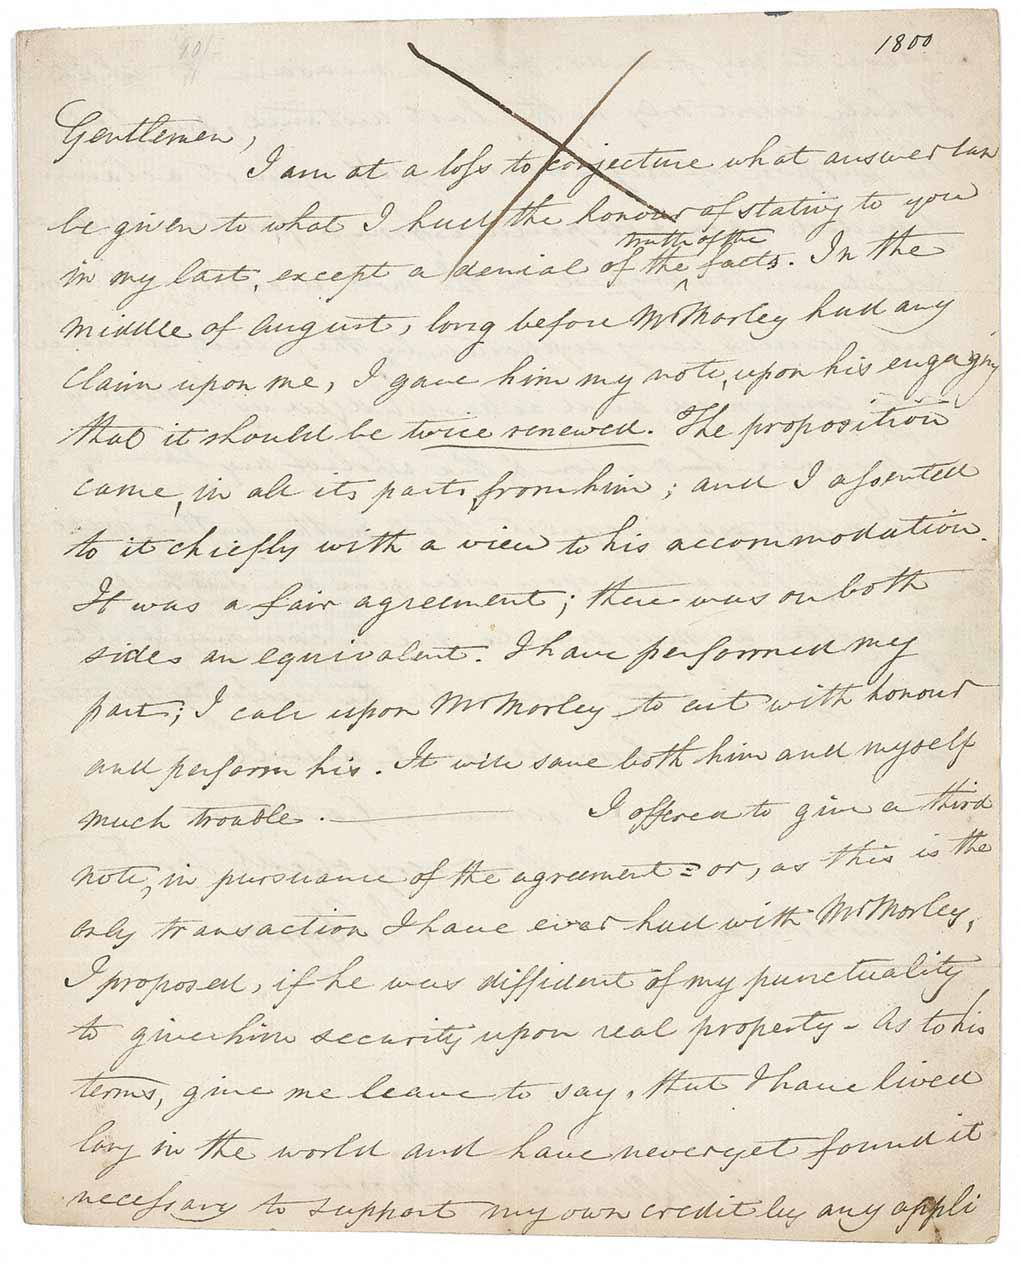 1800
Gentlemen,
I am at a loss to conjecture what answer can
be given to what I had the honour of stating to you
in my last, except a denial of the truth of the facts. In the
middle of August, long before Mr Morley had any
claim upon me, I gave him my note, upon his engaging
that it should be twice renewed. The proposition
came, in all its parts, from him; and I assented
to it chiefly with a view to his accommodation.
It was a fair agreement; there was on both
sides an equivalent. I have performed my
part; I call upon Mr Morley to act with honour
and perform his. It will save both him and myself
much trouble. — I offered to give a third
note, in pursuance of the agreement: or, as this is the
only transaction I have ever had with Mr Morley,
I proposed, if he was diffident of my punctuality,
to give him security upon real property - As to his
terms, give me leave to say, that I have lived
long in the world and have never yet found it
necessary to support my own credit by any appli